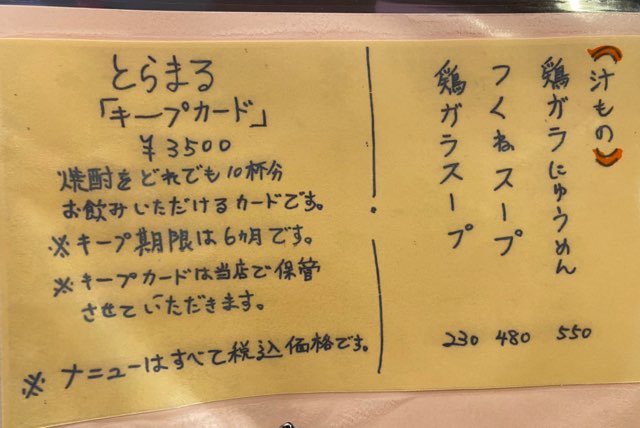 (汁もの)
鶏ガラにゅうめん 550
つくねスープ 480
鶏ガラスープ 230
とらまる
「キープカード」
¥3500
焼酎をどれでも10杯分
お飲みいただけるカードです。
※キープ期限は6カ月です。
※キープカードは当店で保管
させていただきます。
※ ナニューはすべて税込価格です。